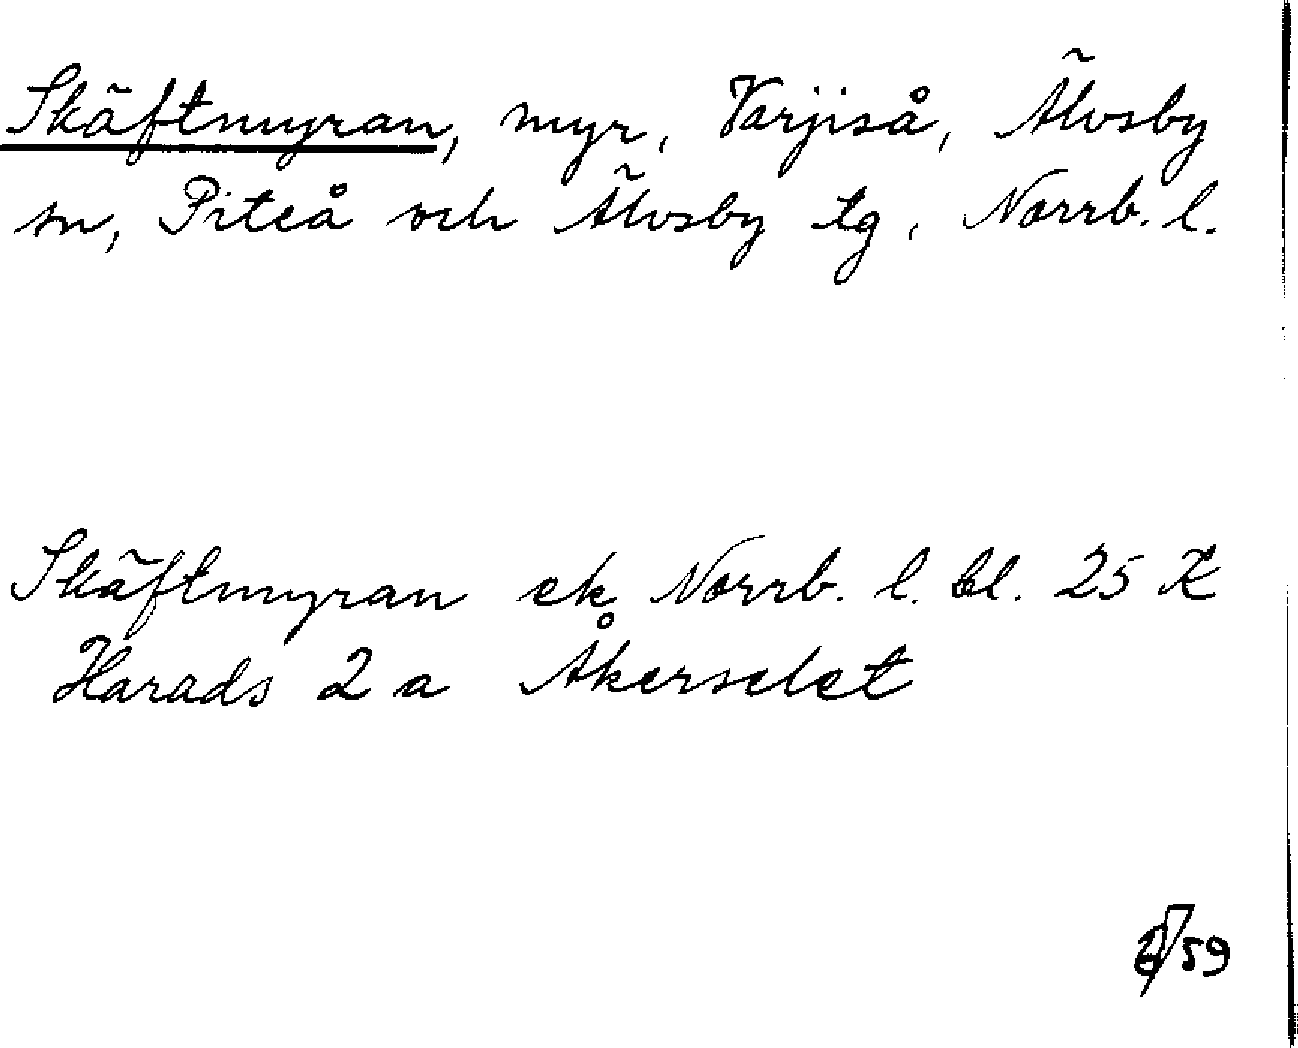 Skäftmyran, myr, Varjiså, Älvsby
sn, Piteå och Älvsby tg, Norrb. l.
Skäftmyran ek Norrb. l. bl. 25 K
Harads 2 a Åkerselet